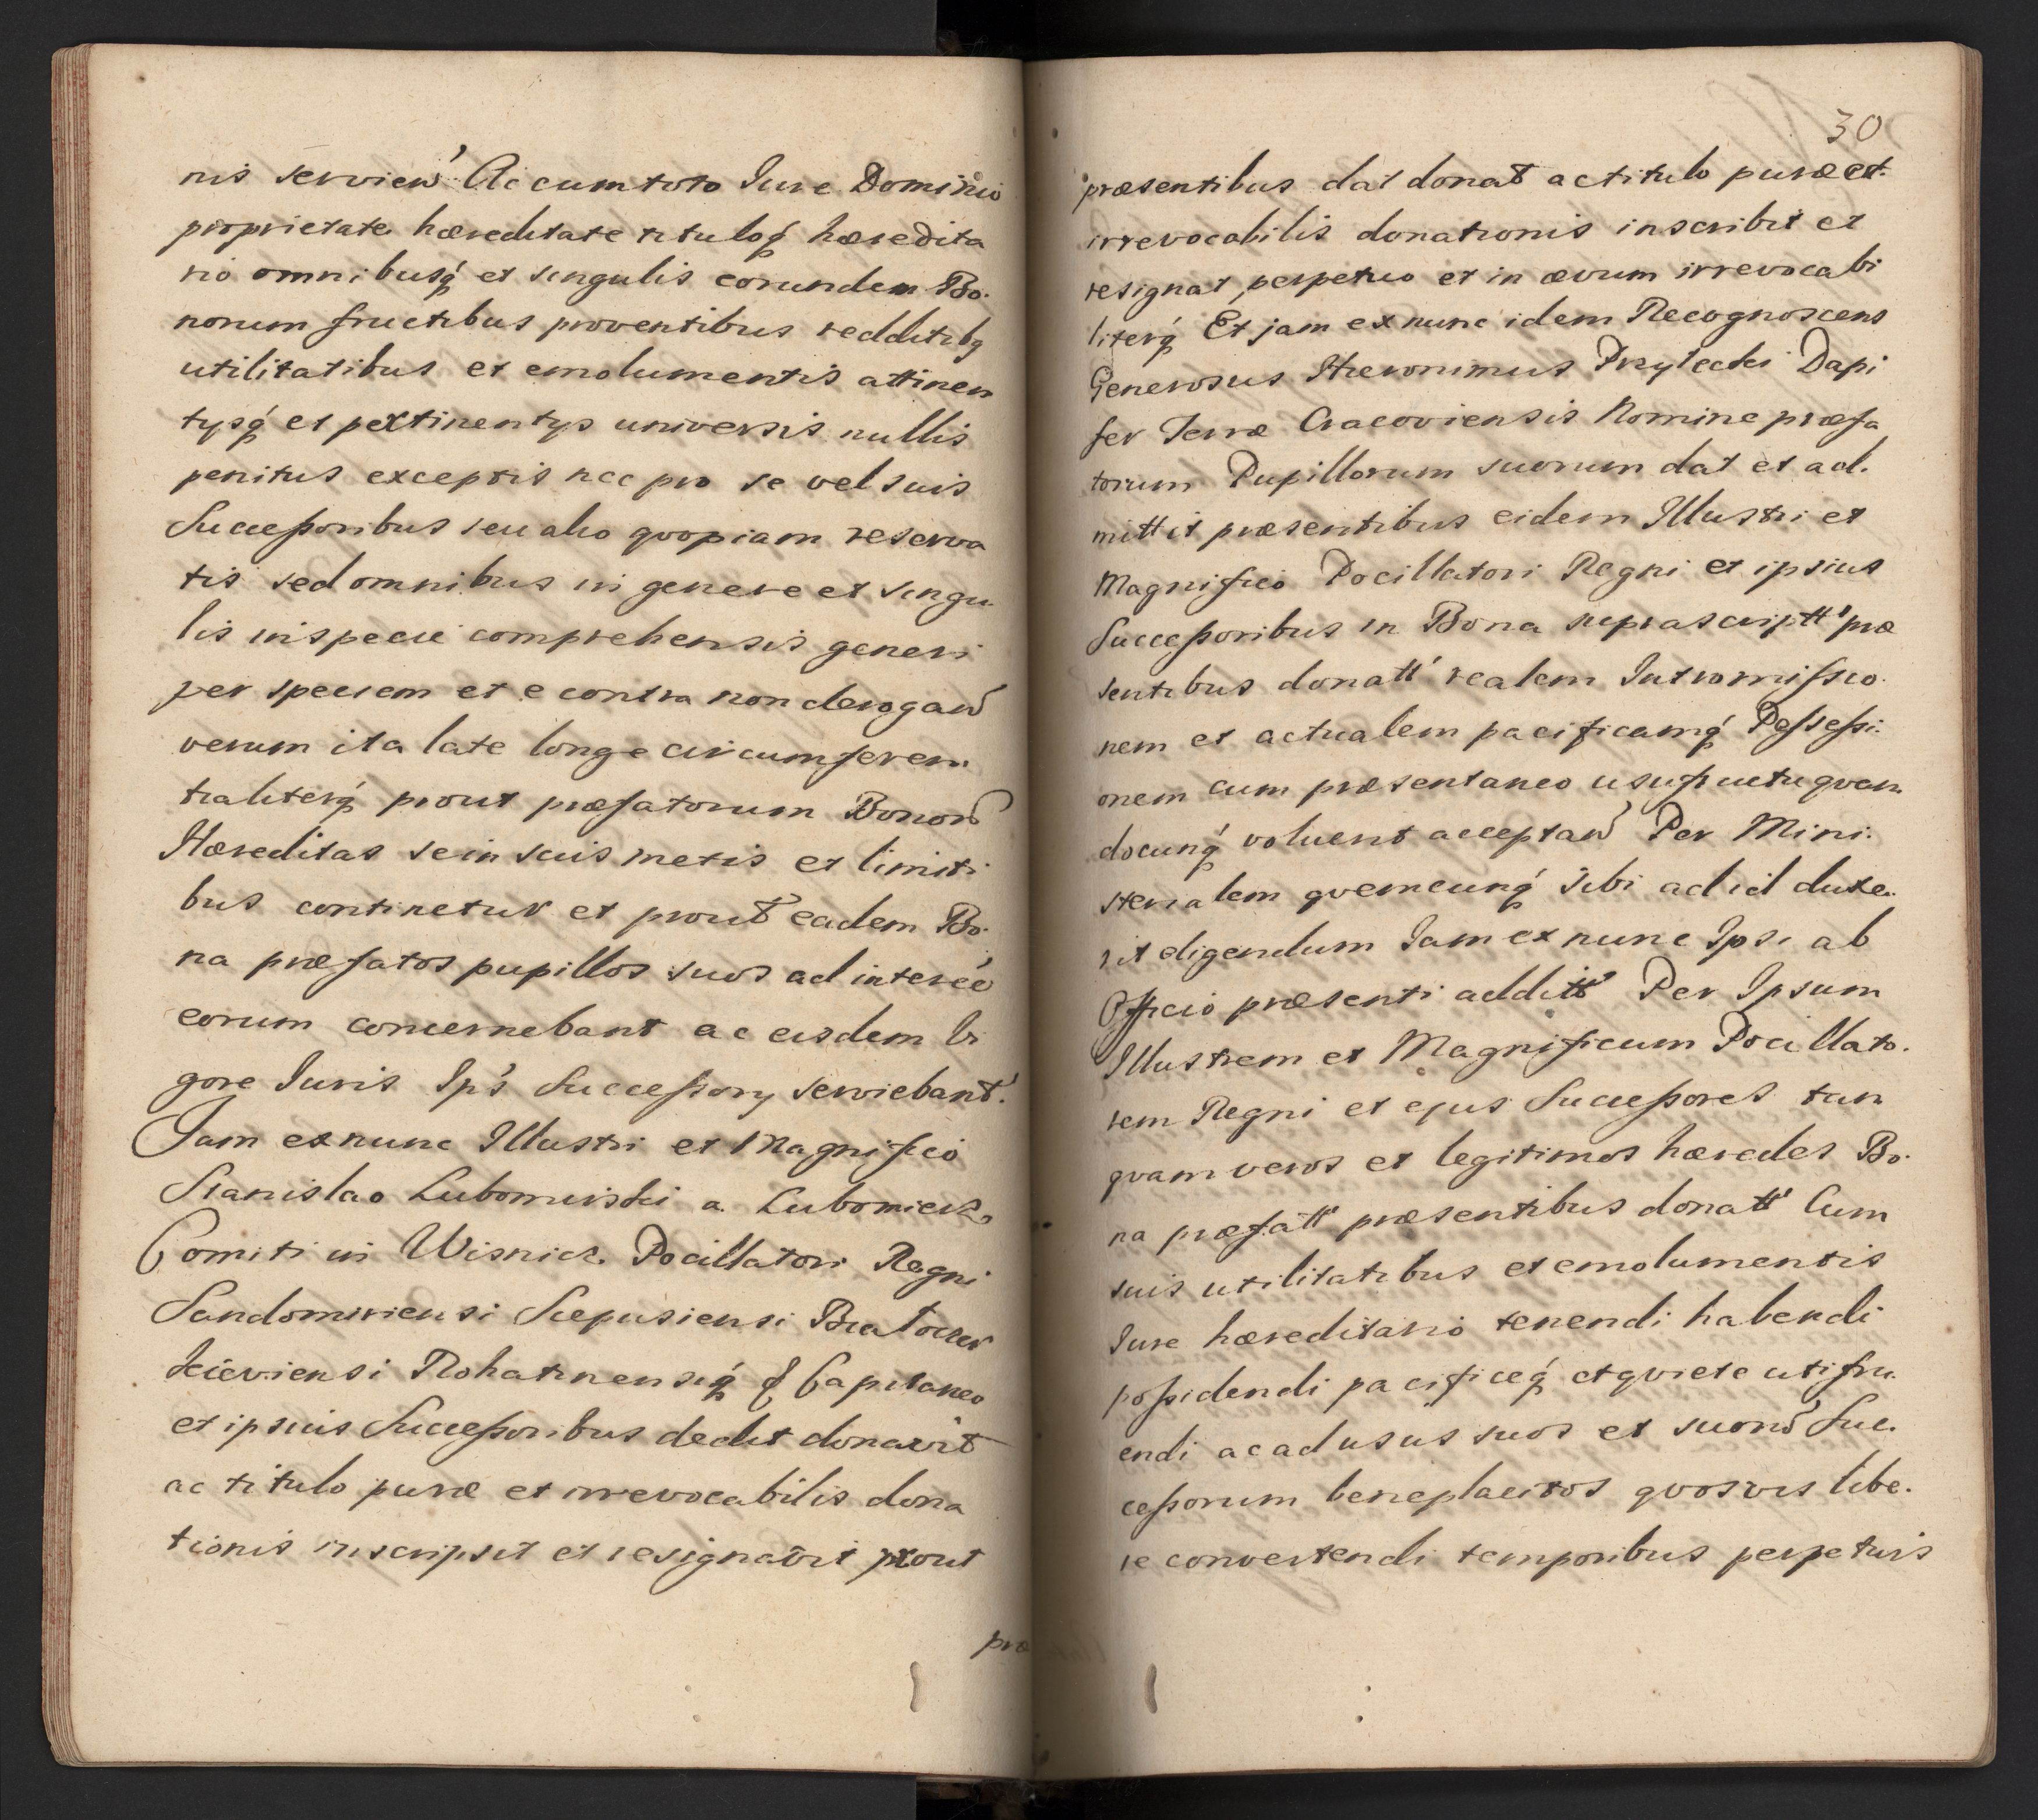 nis servień Ac cum toto Iure Dominio
proprietate hæreditate tituloq́ hæredita
rio omnibusq́ et singulis eorundem Bo.
norum fructibus proventibus redditibq
utilitatibus et emolumentis attinen
tysq́ et pertinentys universis nullis
penitus exceptis nec pro se vel suis
Succeßoribus seu alio qvopiam reserva
tis sed omnibus in genere et singu
lis in specie comprehensis generi
per speciem et e contra non derogań
verum ita late longe circumferen.
tialiterq́ prout præfatorum Bonorú
Hæreditas se in suis metis et limiti
bus continetur et prout eadem Bo.
na præfatos pupillos suos ad intereé
eorum concernebant ac eisdem Vi
gore Iuris Ips Succeßory serviebant.
Jam ex nunc Illustri et Magnifico
Stanislao Lubomirski a Lubomierz
Comiti in Wisnicz Pocillatori Regni
Sandomiriensi Scepusiensi Bialocer
kieviensi Rohatinensiq́ & Capitaneo
et ipsius Succeßoribus dedit donavit
ac titulo puræ et irrevocabilis dona
tionis inscripsit et resignavit prout
præ
30
præsentibus dat donat ac titulo puræ et
irrevocabilis donationis inscribit et
resignat, perpetuo et in ævum irrevocabi
literq́ Et jam ex nunc idem Recognoscens
Generosus Hieronimus Przylecki Dapi
fer Terræ Cracoviensis Nomine præfa
torum Pupillorum suorum dat et ad.
mittit præsentibus eidem Illustri et
Magnifico Pocillatori Regni et ipsius
Succeßoribus in Bona suprascriptt' præ
sentibus donatt' realem Intromißio.
nem et actualem pacificamq́ Poßeßi.
onem cum præsentaneo usufructu qvan.
docunq́ voluerit acceptań Per Mini.
sterialem qvemcunq́ sibi ad id duxe.
rit eligendum Iam ex nunc Ipsi ab
Officio præsenti additt' Per Ipsum
Illustrem et Magnificum Pocillato.
rem Regni et ejus Succeßores tan
qvam veros et legitimos hæredes Bo.
na præfatt' præsentibus donatt' Cum
suis utilitatibus et emolumentis
Iure hæreditario tenendi habendi
poßidendi pacificeq́ et qviete utifru.
endi ac ad usus suos et suorú Suc.
ceßorum beneplacitos qvosvis libe.
re convertendi temporibus perpetuis